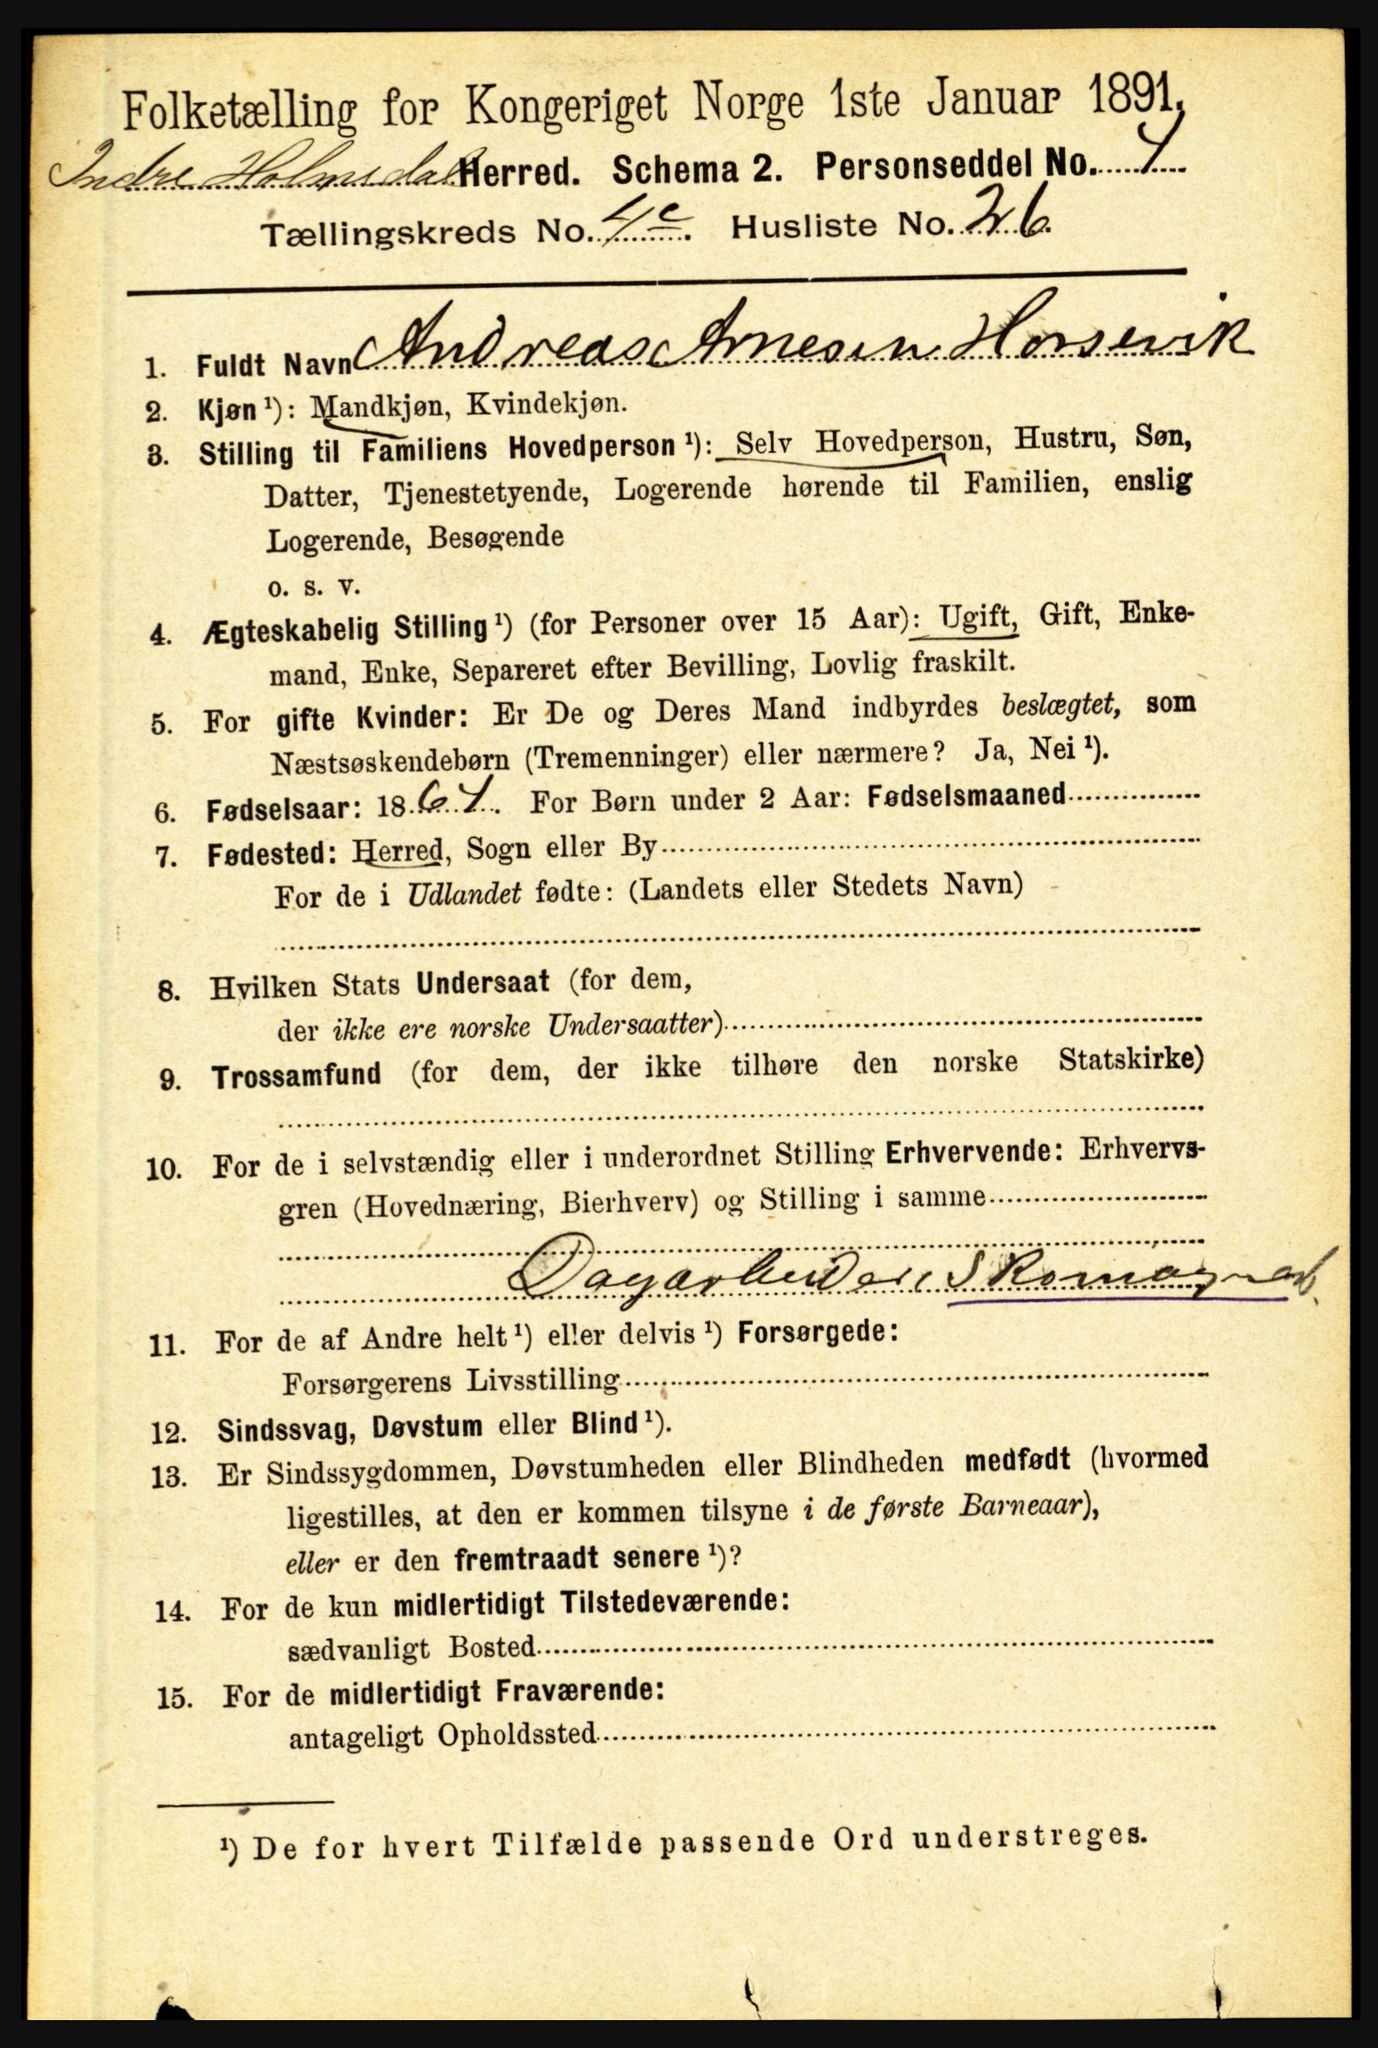 Folketælling for Kongeriget Norge 1ste Januar 1891.
Indre Holmedal Herred. Schema 2. Personseddel No. 1
Tællingskreds No. 4c. Husliste No. 26.
1. Fuldt Navn Andreas Arnesen Horsevik
2. Kjøn ¹): Mandkjøn, Kvindekjøn.
3. Stilling til Familiens Hovedperson ¹): Selv Hovedperson, Hustru, Søn,
Datter, Tjenestetyende, Logerende hørende til Familien, enslig
Logerende, Besøgende
o. s. v.
4. Ægteskabelig Stilling ¹) (for Personer over 15 Aar): Ugift, Gift, Enke-
mand, Enke, Separeret efter Bevilling, Lovlig fraskilt.
5. For gifte Kvinder: Er De og Deres Mand indbyrdes beslægtet, som
Næstsøskendebørn (Tremenninger) eller nærmere? Ja, Nei ¹).
6. Fødselsaar: 1861. For Børn under 2 Aar: Fødselsmaaned
7. Fødested: Herred, Sogn eller By
For de i Udlandet fødte: (Landets eller Stedets Navn)
8. Hvilken Stats Undersaat (for dem,
der ikke ere norske Undersaatter)
9. Trossamfund (for dem, der ikke tilhøre den norske Statskirke)
10. For de i selvstændig eller i underordnet Stilling Erhvervende: Erhvervs-
gren (Hovednæring, Bierhverv) og Stilling i samme
Dagarbeider, Skomagerarb.
11. For de af Andre helt ¹) eller delvis ¹) Forsørgede:
Forsørgerens Livsstilling
12. Sindssvag, Døvstum eller Blind ¹).
13. Er Sindssygdommen, Døvstumheden eller Blindheden medfødt (hvormed
ligestilles, at den er kommen tilsyne i de første Barneaar),
eller er den fremtraadt senere ¹)?
14. For de kun midlertidigt Tilstedeværende:
sædvanligt Bosted
15. For de midlertidigt Fraværende:
antageligt Opholdssted
¹) De for hvert Tilfælde passende Ord understreges.